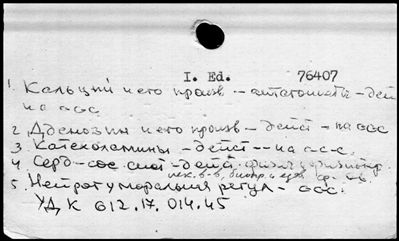 I. Ed. 76407
1. Кальций и его произв – антагонисты – дейст
на ссс
2 Аденозин и его произв – дейст – на ссс
3 Катехоламины – дейст – на ссс.
4 Серд-сос сист – дейст. физич. и физиотер.
лек. в-в, биопр. и
5. Нейрогуморальная регул – ссс.
УДК 612.17.014.45